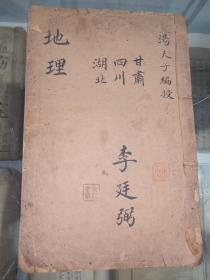 馮夫子編授
甘肅
四川
湖北
地理
李廷弼